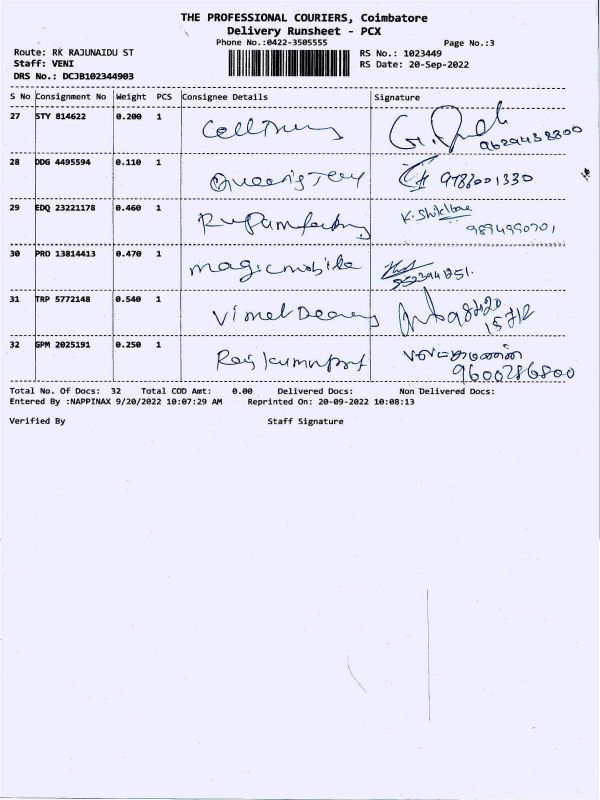 THE PROFESSIONAL COURIERS, Coimbatore
Delivery Runsheet - PCX
Phone No.:0422-3505555
Page No.:3
Route: RK RAJUNAIDU ST
RS No.: 1023449
Staff: VENI
RS Date: 20-Sep-2022
DRS No.: DCJB102344903
S No Consignment No Weight PCS Consignee Details Signature
27 STY 814622 0.200 1
9629438800
28 DDG 4495594 0.110 1 Queen's Tery
9786001330
29 EDQ 23221178 0.460 1
K. Shik
9894990701
30 PRO 13814413 0.470 1 magicmobile
31 TRP 5772148 0.540 1 Vimel
32 GPM 2025191 0.250 1
9600286800
Total No. Of Docs: 32 Total COD Amt: 0.00 Delivered Docs: Non Delivered Docs:
Entered By :NAPPINAX 9/20/2022 10:07:29 AM Reprinted On: 20-09-2022 10:08:13
Verified By Staff Signature